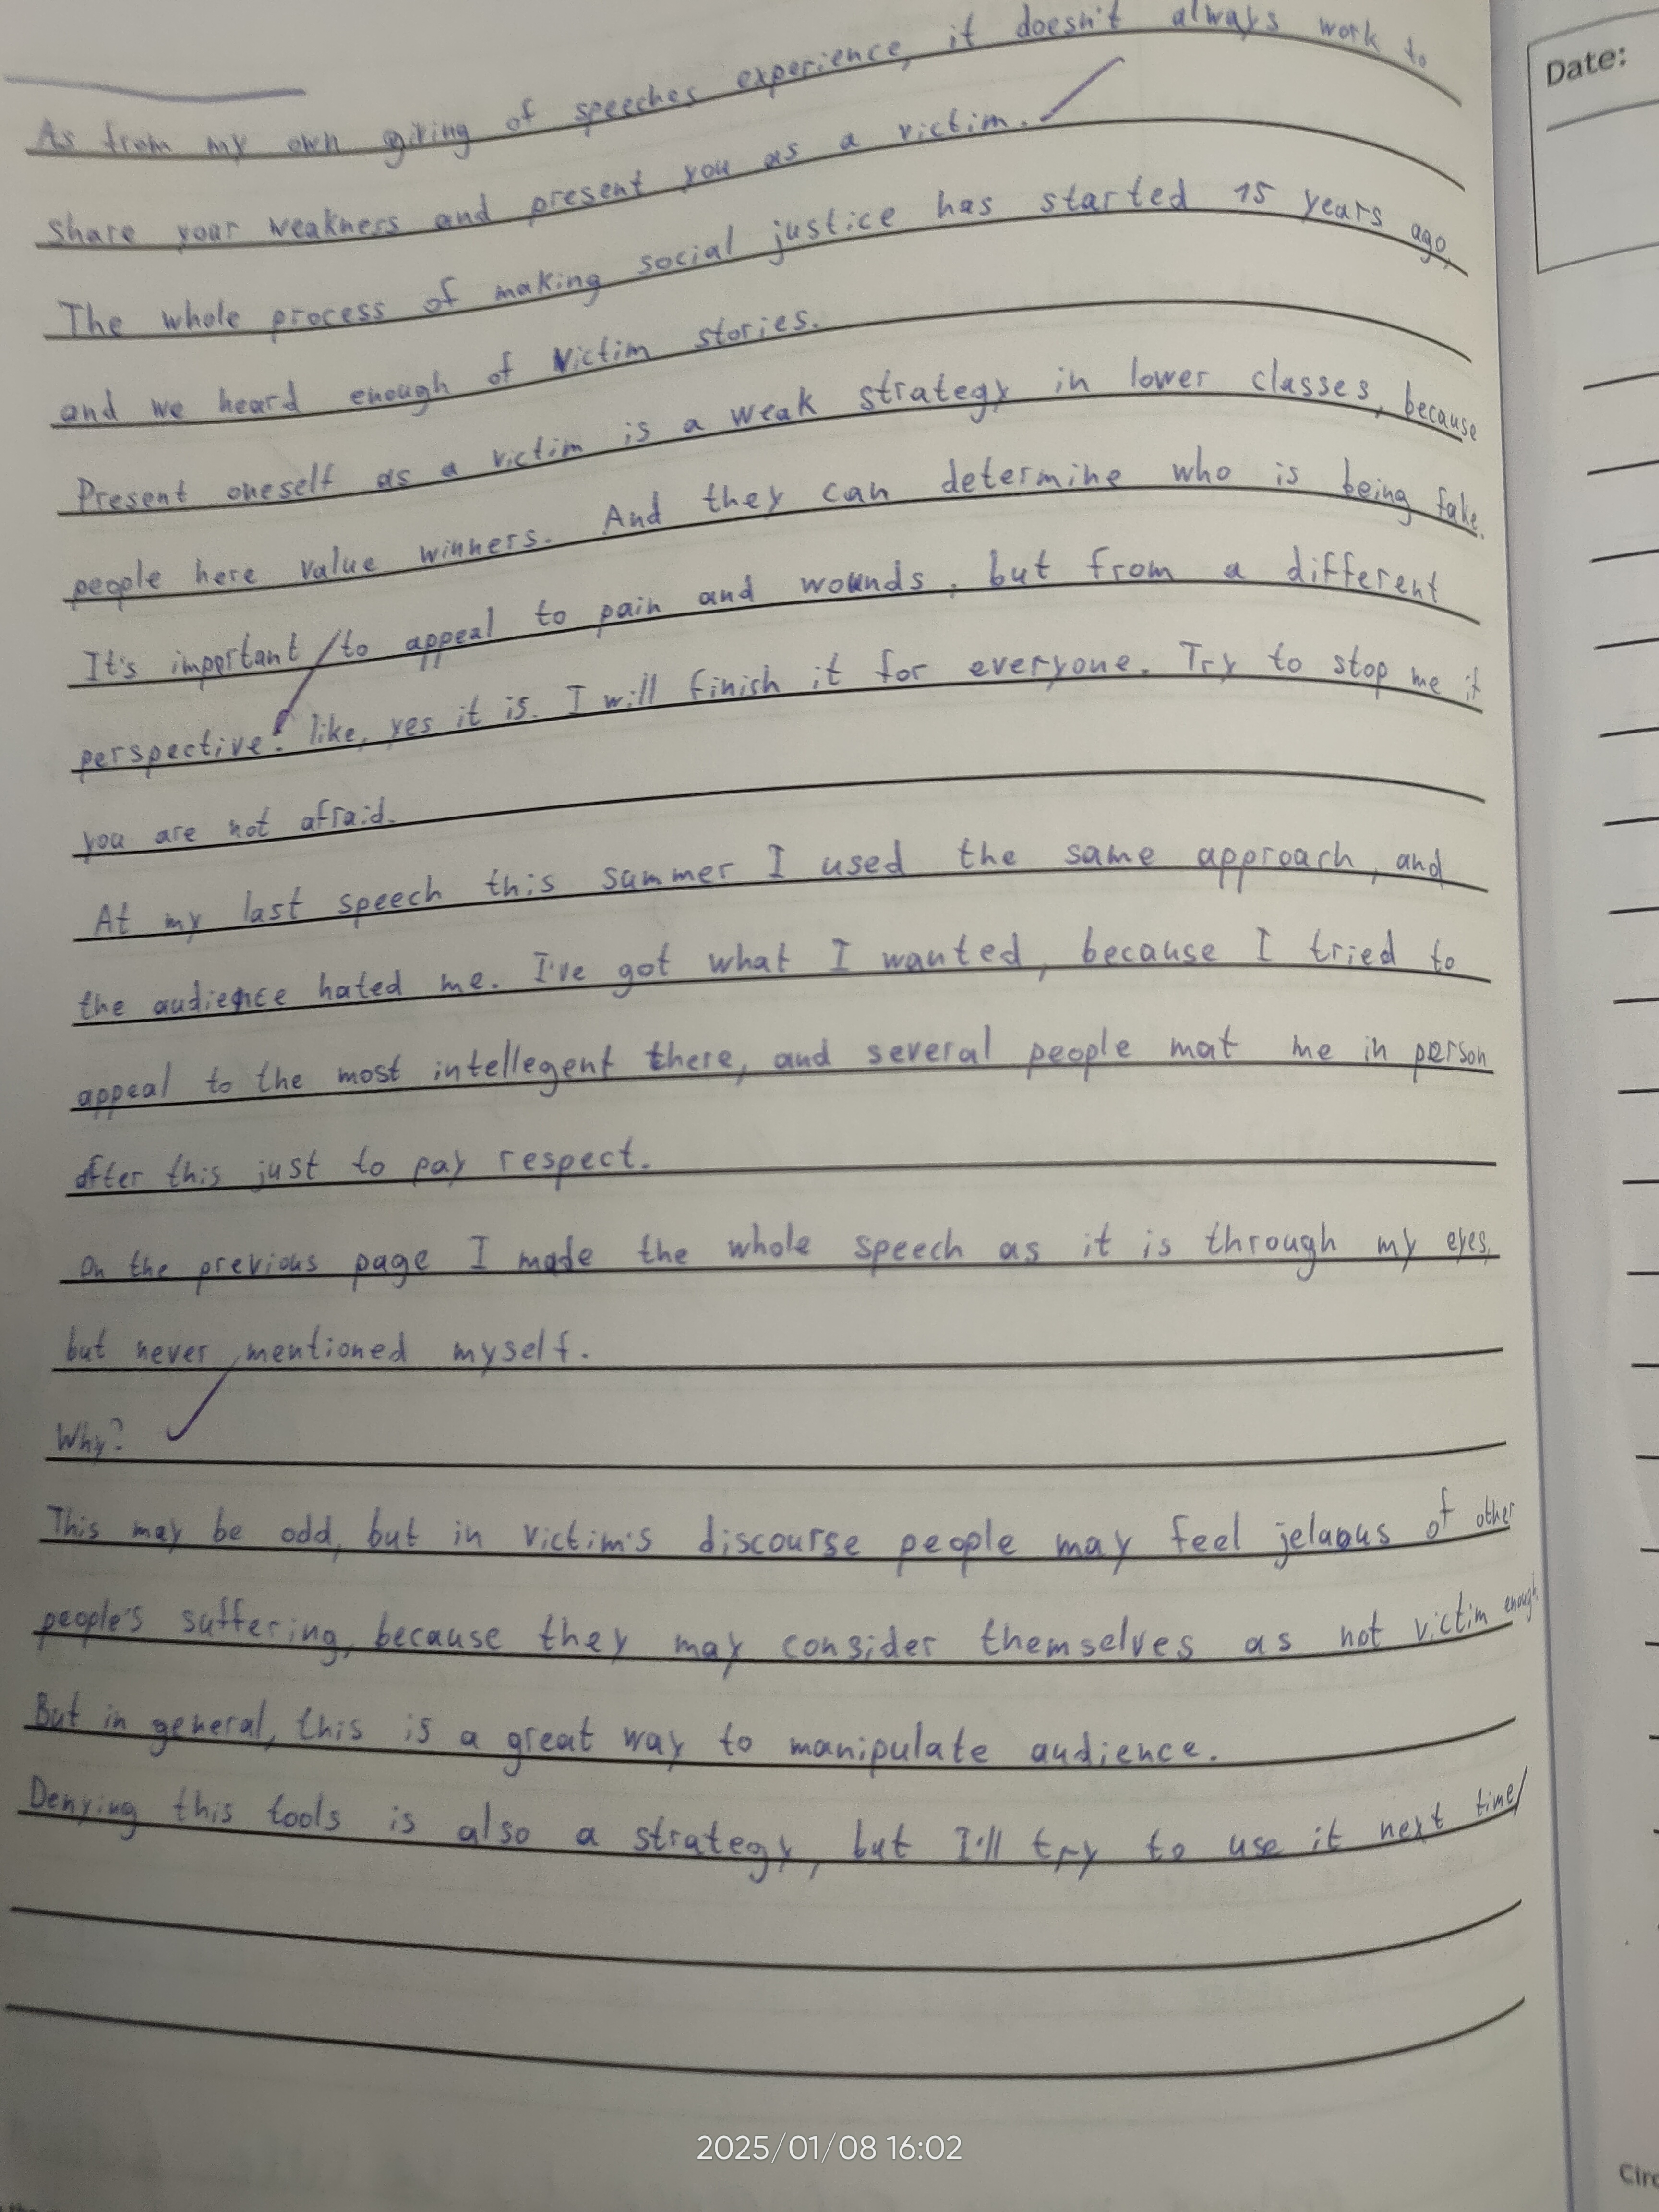 Date:
As from my own giving of speeches experience, it doesn't always work to
share your weakness and present you as a victim.
The whole process of making social justice has started 15 years ago,
and we heard enough of victim stories.
Present oneself as a victim is a weak strategy in lower classes, because
people here value winners. And they can determine who is being fake.
It's important to appeal to pain and wounds, but from a different
perspective: like, yes it is. I will finish it for everyone. Try to stop me if
you are not afraid.
At my last speech this summer I used the same approach, and
the audience hated me. I've got what I wanted, because I tried to
appeal to the most intellegent there, and several people mat me in person
after this just to pay respect.
On the previous page I made the whole speech as it is through my eyes,
but never mentioned myself.
Why?
This may be odd, but in victim's discourse people may feel jelaous of other
people's suffering, because they may consider themselves as not victim enough
But in general, this is a great way to manipulate audience.
Denying this tools is also a strategy, but I'll try to use it next time
2025/01/08 16:02